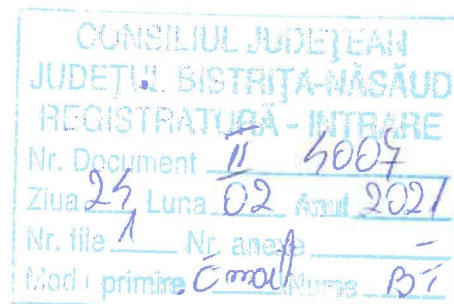 CONSILIUL JUDEȚEAN
JUDEȚUL BISTRIȚA-NĂSĂUD
REGISTRATURĂ - INTRARE
Nr. Document II 4007
Ziua 24 Luna 02 Anul 2021
Nr. file 1 Nr. anexe -
Mod primire Email Nume